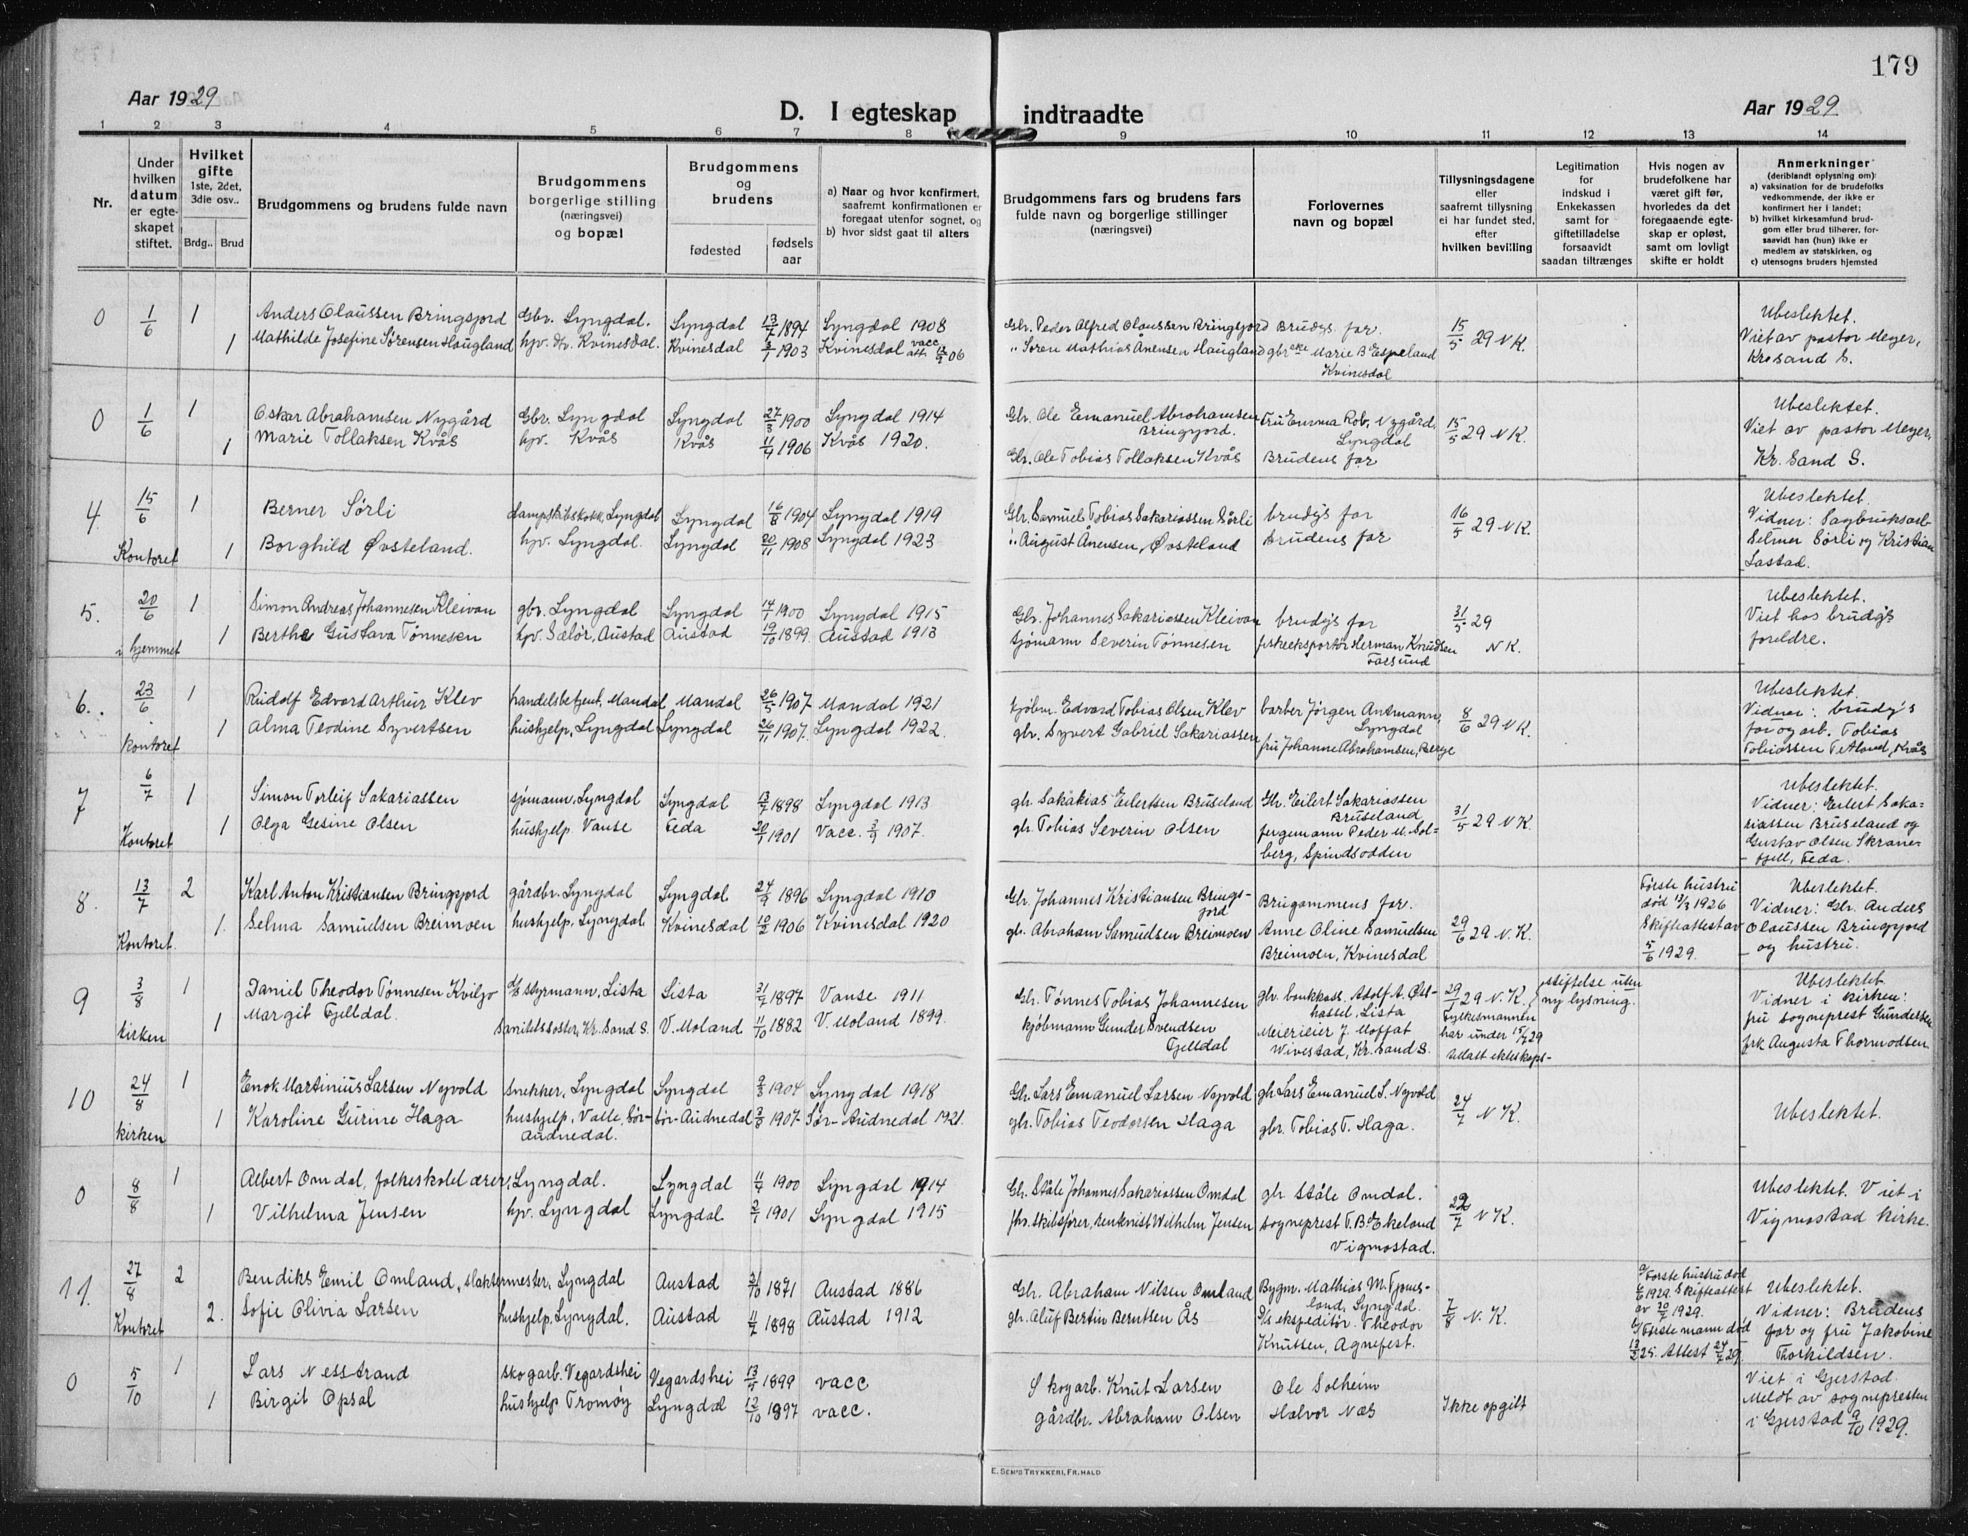 179
Aar 1929
D. I egteskap indtraadte
Aar 1929
1 2 3 4 5 6 7 8 9 10 11 12 13 14
Nr.
Under hvilken datum er egteskapet stiftet.
Hvilket gifte 1ste, 2det, 3die osv..
Brdg.. Brud
Brudgommens og brudens fulde navn
Brudgommens borgerlige stilling (næringsvei) og bopæl
Brudgommens og brudens
fødested
fødsels aar
a) Naar og hvor konfirmert, saafremt konfirmationen er foregaat utenfor sognet, og
b) hvor sidst gaat til alters
Brudgommens fars og brudens fars fulde navn og borgerlige stillinger (næringsvei)
Forlovernes navn og bopæl
Tillysningsdagene eller saafremt tillysning ei har fundet sted, efter hvilken bevilling
Legitimation for indskud i Enkekassen samt for giftetilladelse forsaavidt saadan tiltrænges
Hvis nogen av brudefolkene har været gift før, hvorledes da det foregaaende egteskap er opløst, samt om lovligt skifte er holdt
Anmerkninger (deriblandt oplysning om):
a) vaksination for de brudefolks vedkommende, der ikke er konfirmert her i landet;
b) hvilket kirkesamfund brudgom eller brud tilhører, forsaavidt han (hun) ikke er medlem av statskirken, og
c) utensogns bruders hjemsted
0 1/6 1 Anders Olaussen Bringsjord Gbr. Lyngdal. Lyngdal 13/7 1894 Lyngdal 1908 Gbr. Peder Alfred Olaussen Bringsjord Brudgs far. 15/5 29 N.K. Ubeslektet.
1 Mathilde Josefine Sørensen Haugland hjv. Kvinesdal. Kvinesdal 1903 Kvinesdal vacc. 06 " Søren Mathias Anensen Haugland gbrske Marie B. Espeland Kvinesdal Viet av pastor Meyer, Krsand S.
0 1/6 1 Oskar Abrahamsen Nygård Gbr. Lyngdal Lyngdal 27/3 1900 Lyngdal 1914 Gbr. Ole Emanuel Abrahamsen Bringsjord. Fru Emma Rob. Nygård, Lyngdal 15/5 29 N.K. Ubeslektet.
1 Marie Tollaksen Kvås hjv. Kvås Kvås 1906 Kvås 1920. Gbr. Ole Tobias Tollaksen Kvås Brudens far Viet av pastor Meyer, Kr. Sand S.
4 15/6 1 Berner Sørli dampskibskokk, Lyngdal Lyngdal 16/8 1904 Lyngdal 1919 Gbr. Samuel Tobias Sakariassen Sørli brudgs far 16/5 29 N.K. Ubeslektet.
Kontoret 1 Borghild Øvsteland. hjv. Lyngdal. Lyngdal 20/11 1908 Lyngdal 1923 " August Anensen Øvsteland brudens far Vidner: Sagbruksarb. Selmer Sørli og Kristian Lastad.
5. 20/6 1 Simon Andreas Johannesen Kleivan gbr. Lyngdal Lyngdal 1900 Lyngdal 1915 Gbr. Johannes Sakariassen Kleivan brudgs far 31/5 29 N.K. Ubeslektet.
i hjemmet 1 Berthe Gustava Tønnesen hjv. Sælør, Austad Austad 19/10 1899 Austad 1913 sjømann Severin Tønnesen fiskeeksportør Herman Knudsen Farsund Viet hos brudgs foreldre.
6. 23/6 1 Rudolf Edvard Arthur Klev handelsbetjent, Mandal Mandal 26/5 1907 Mandal 1921 kjøbm. Edvard Tobias Olsen Klev barber Jørgen Antmann, Lyngdal 8/6 29 N.K. Ubeslektet.
kontoret 1 Alma Teodine Syvertsen hushjelp, Lyngdal Lyngdal 26/11 1907. Lyngdal 1922. gbr. Syvert Gabriel Sakariassen fru Johanne Abrahamsen, Berge Vidner: brudg's far og arb. Tobias Tobiassen Tetland, Kvås
7 6/7 1 Simon Torleif Sakariassen sjømann, Lyngdal Lyngdal 13/7 1898 Lyngdal 1913 gbr. Sakakias Eilertsen Bruseland Gbr. Eilert Sakariassen Bruseland 31/5 29 N.K. Ubeslektet.
Kontoret 1 Olga Gesine Olsen hushjelp. Vanse Feda 1901 Vacc. 1907. gbr. Tobias Severin Olsen fergemann Peder M. Solberg, Spindsodden Vidner: Eilert Sakariassen Bruseland og Gustav Olsen Skranefjell, Feda.
8. 13/7 2 Karl Anton Kristiansen Bringsjord gårdbr. Lyngdal Lyngdal 1896 Lyngdal 1910 Gbr. Johannes Kristiansen Bringsjord Brugommens far. 29/6 29 N.K. Første hustru død 1926 Skifteattest av 5/6 1929. Ubeslektet.
Kontoret 1. Selma Samuelsen Breimoen hushjelp. Lyngdal. Kvinesdal 10/2 1906 Kvinesdal 1920 gbr. Abraham Samuelsen Breimoen Anne Oline Samuelsen Breimoen, Kvinesdal Vidner: Gbr. Anders Olaussen Bringsjord og hustru.
9 3/8 1 Daniel Theodor Tønnesen Kviljo styrmann, Lista Lista 31/7 1897 Vanse 1911 Gbr. Tønnes Tobias Johannesen gbr. bankkass. Adolf A. Østhassel, Lista 29 N.K. Fylkesmannen har under 15/7 29 tillatt ekteskaps-stiftelse uten ny lysning. Ubeslektet.
kirken 1 Margit Fjelldal. Sanitetssøster, Kr. Sand S. V. Moland 11/10 1882 V. Moland 1899. kjøbmann Gunder Svendsen Fjelldal Meierieier J. Moffat Wivestad, Kr. Sand S. Vidner i kirken: fru sogneprest Gundersen frk Augusta Thormodsen.
10 24/8 1 Enok Martinius Larsen Nyvold snekker, Lyngdal Lyngdal 1904 Lyngdal 1918 Gbr. Lars Emanuel Larsen Nyvold gbr. Lars Emanuel L. Nyvold 24/7 N.K. Ubeslektet.
kirken 1 Karoline Gurine Haga hushjelp, Valle, Sør-Audnedal. Sør-Audnedal 1907 Sør-Audnedal 1921. gbr. Tobias Teodorsen Haga gbr. Tobias T. Haga.
0 8/8 1 Albert Omdal, folkeskolelærer, Lyngdal. Lyngdal 1900 Lyngdal 1914 Gbr. Ståle Johannes Sakariassen Omdal gbr. Ståle Omdal. 22/7 N.K. Ubeslektet. Viet i Vigmostad kirke.
1 Vilhelma Jensen hjv. Lyngdal Lyngdal 1901 Lyngdal 1915 fhv. skibsfører, Wilhelm Jensen sogneprest T. B. Ekeland Vigmostad.
11. 27/8 2 Bendiks Emil Omland, slaktermester, Lyngdal Austad 1871 Austad 1886 Gbr. Abraham Nilsen Omland Bygm. Mathias M. Tjomsland, Lyngdal. 7/8 N.K. a) Første hustru død 1929. Skifteattest av 20/7 1929. Ubeslektet.
Kontoret 2. Sofie Olivia Larsen hushjelp, Lyngdal. Austad 11/7 1898 Austad 1912 gbr. Aluf Bertin Berntsen Ås D/s ekspeditør. Theodor Knutsen, Agnefest. b) Første mann død 25. Attest 29. Vidner: Brudens far og fru Jakobine Thorkildsen.
0 5/10 1 Lars Nesstrand skogarb. Vegardshei Vegardshei 13/5 1899 vacc Skogarb. Knut Larsen Ole Solheim Ikke opgitt Viet i Gjerstad.
1 Birgit Opsal hushjelp Tromøy Lyngdal 12/10 1897 vacc. gårdbr. Abraham Olsen Halvor Næs Meldt av sognepresten i Gjerstad 9/10 1929.
E. SEM'S TRYKKERI, FR.HALD